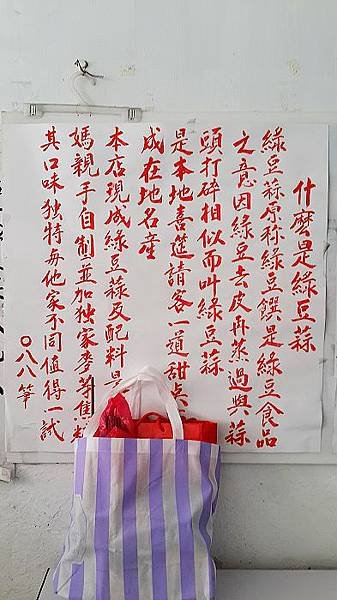 什麼是綠豆蒜
綠豆蒜原称綠豆饌是綠豆食品
之意因綠豆去皮再蒸過與蒜
頭打碎相似而叫綠豆蒜
是本地喜筵請客一道甜点
成在地名産
本店現成綠豆蒜及配料是
媽親手自制並加独家麥芽焦糖
其口味独特与他家不同值得一試
〇八八筆